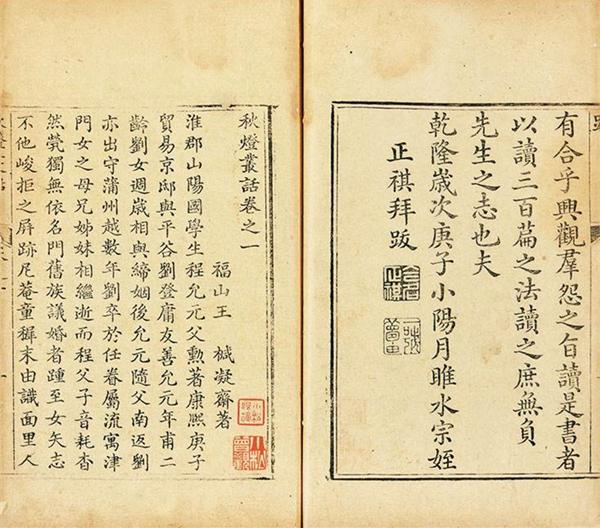 有合乎興觀羣怨之旨讀是書者
以讀三百篇之法讀之庶無負
先生之志也夫
乾隆歲次庚子小陽月睢水宗姪
正祺拜跋
秋燈叢話卷之一
福山王 椷凝齋著
淮郡山陽國學生程允元父勲著康熙庚子
貿易京邸與平谷劉登庸友善允元年甫二
齡劉女週歲相與締姻後允元隨父南返劉
亦出守蒲州越數年劉卒於任眷屬流寓津
門女之母兄姊妹相繼逝而程父子音耗杳
然煢獨無依名門舊族議婚者踵至女矢志
不他峻拒之屏跡尼菴童穉末由識面里人